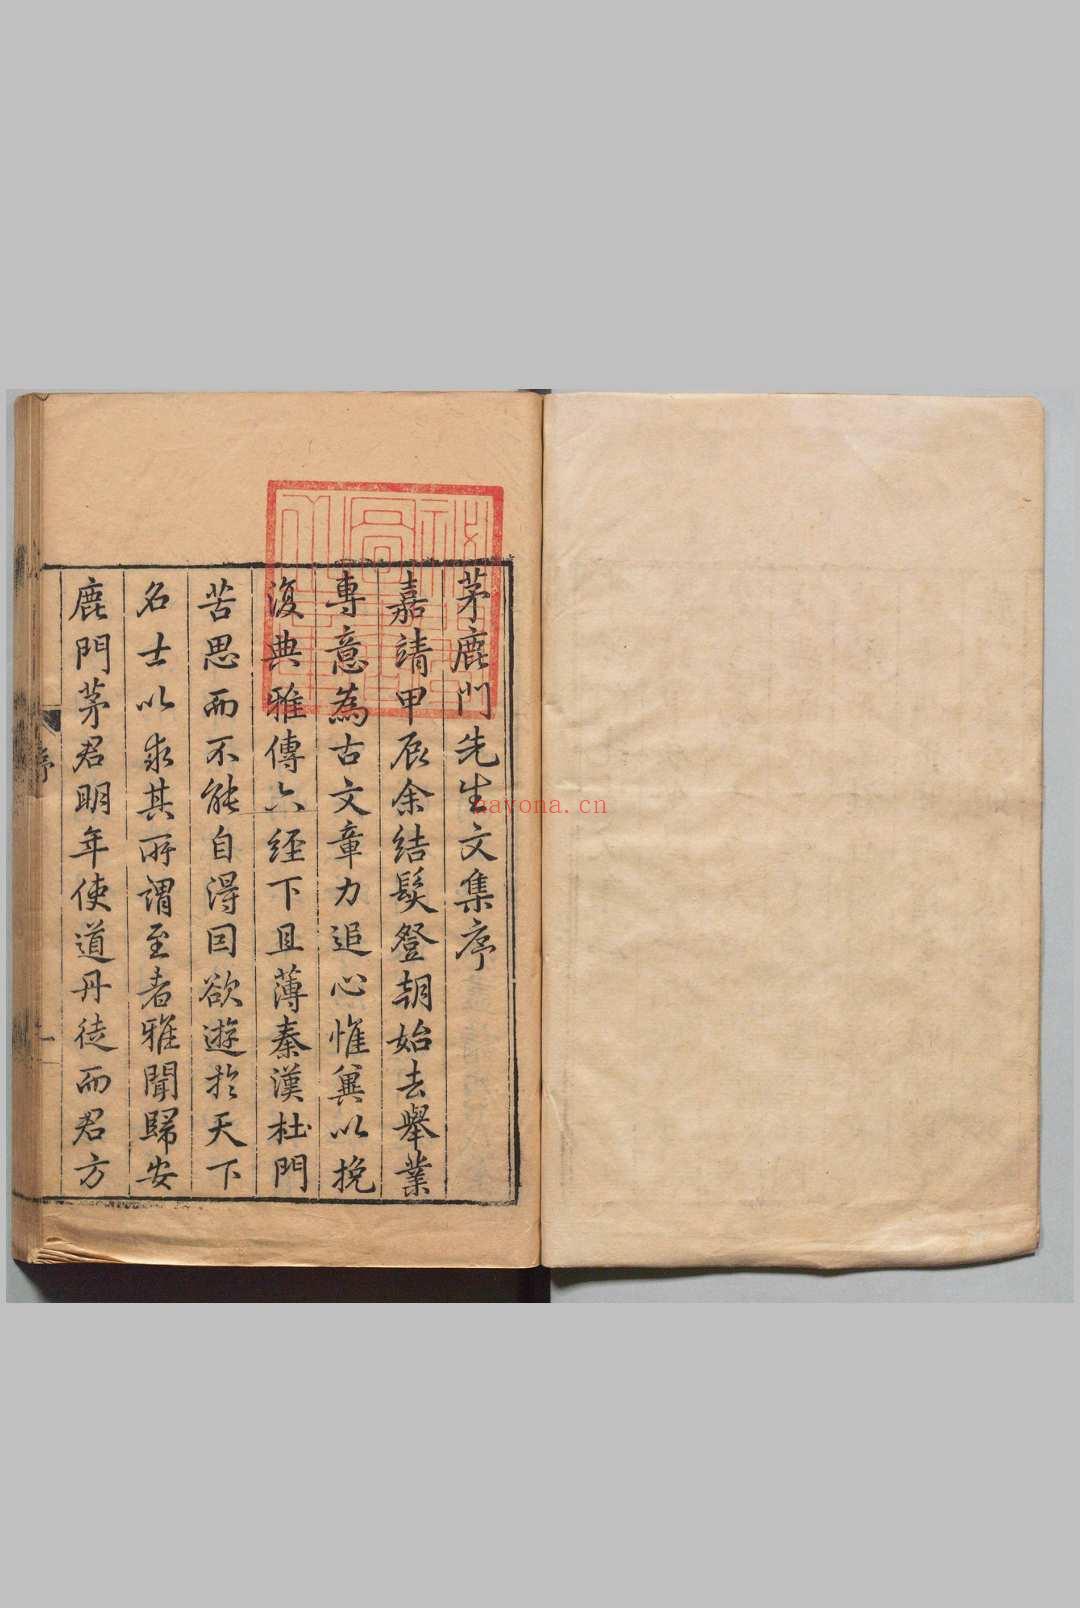 茅鹿門先生文集序
嘉靖甲辰余結髮登朝始去舉業
專意為古文章力追心惟冀以挽
復典雅傳六經下且薄秦漢杜門
苦思而不能自得因欲遊於天下
名士以求其所謂至者雅聞歸安
鹿門茅君明年使道丹徒而君方
序
一
nayona.cn